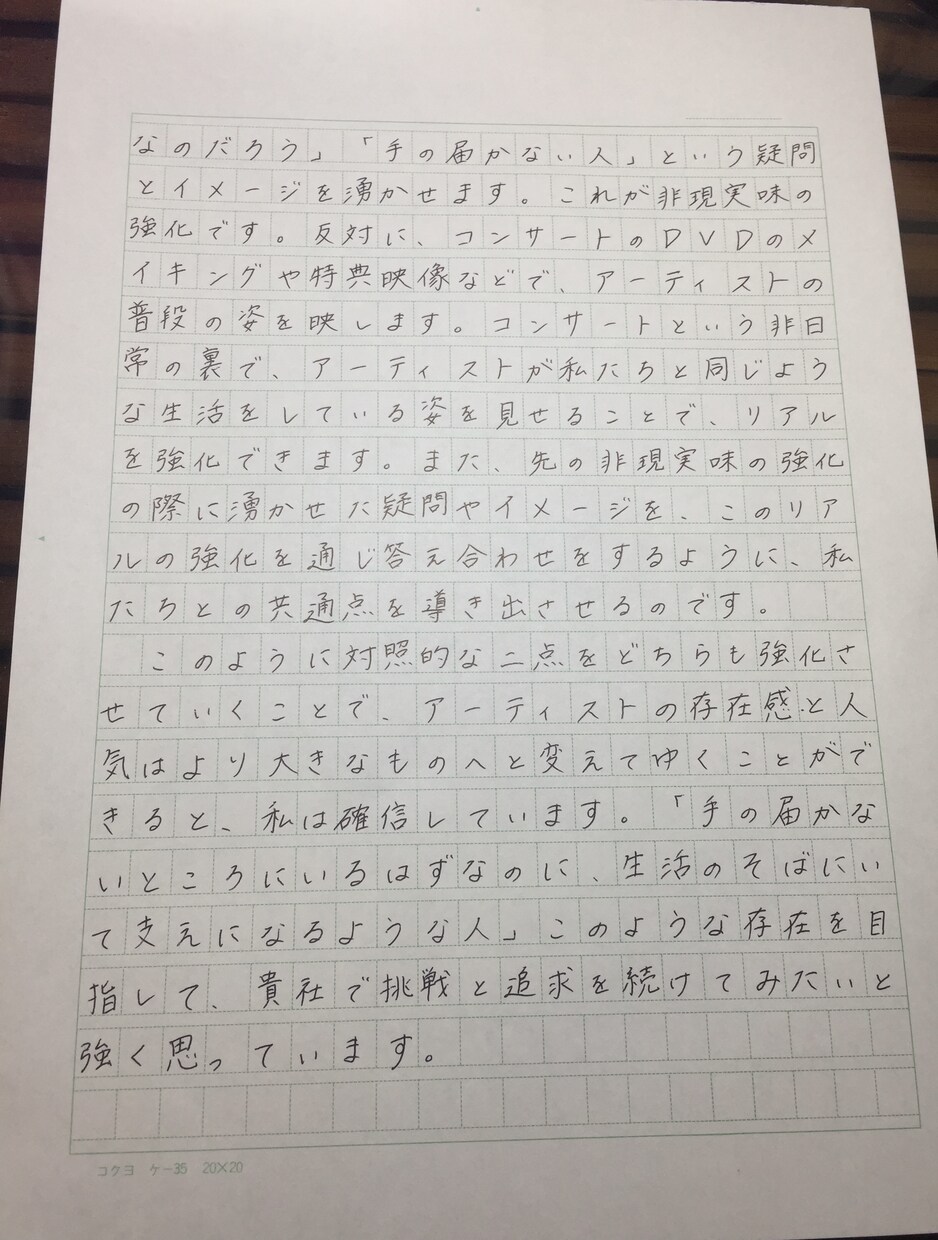 なのだろう」「手の届かない人」という疑問
とイメージを湧かせます。これが非現実味の
強化です。反対に、コンサートのDVDのメ
イキングや特典映像などで、アーティストの
普段の姿を映します。コンサートという非日
常の裏で、アーティストが私たちと同じよう
な生活をしている姿を見せることで、リアル
を強化できます。また、先の非現実味の強化
の際に湧かせた疑問やイメージを、このリア
ルの強化を通じ答え合わせをするように、私
たちとの共通点を導き出させるのです。
このように対照的な二点をどちらも強化さ
せていくことで、アーティストの存在感と人
気はより大きなものへと変えてゆくことがで
きると、私は確信しています。「手の届かな
いところにいるはずなのに、生活のそばにい
て支えになるような人」このような存在を目
指して、貴社で挑戦と追求を続けてみたいと
強く思っています。
コクヨ ケ-35 20×20